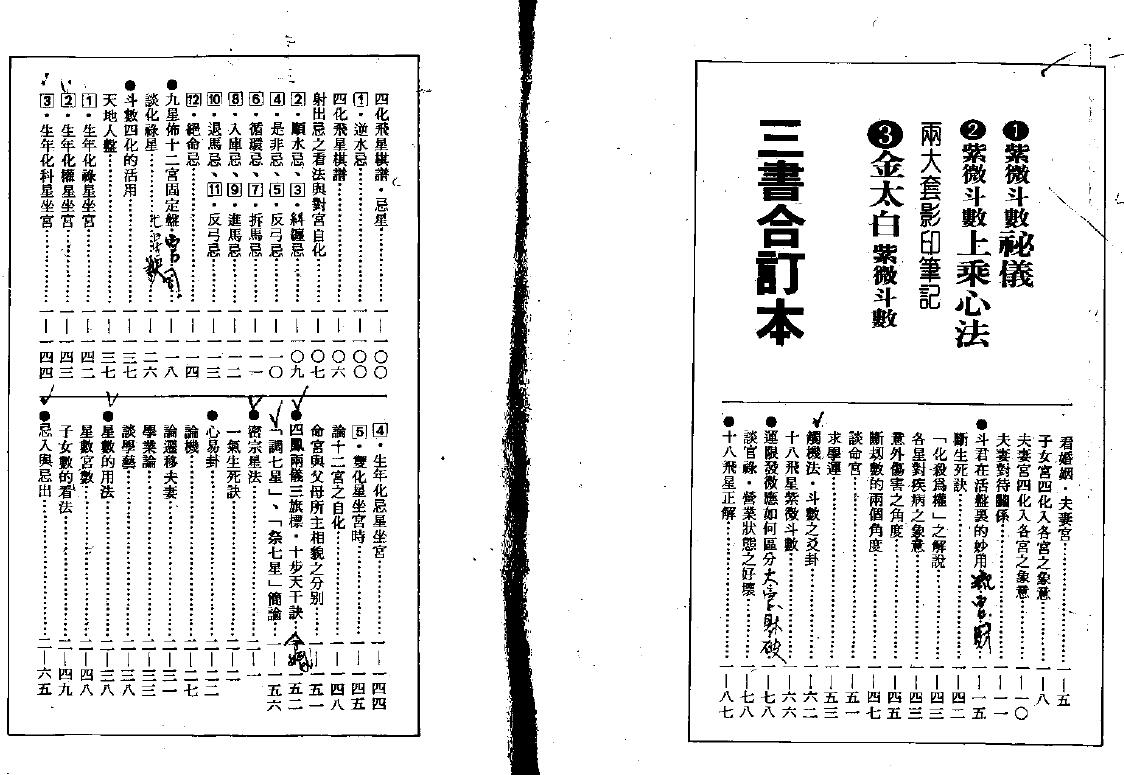 ❶紫微斗數祕儀
❷紫微斗數上乘心法
兩大套影印筆記
❸金太白紫微斗數
三書合訂本
看婚姻・夫妻宮……一—五
子女宮四化入各宮之象意……一—八
夫妻宮四化入各宮之象意……一—一〇
夫妻對待關係……一—一一
●斗君在活盤裏的妙用……一—一五
斷生死訣……一—四二
「化殺為權」之解說……一—四三
各星對疾病之象意……一—四三
意外傷害之角度……一—四五
斷劫數的兩個角度……一—四七
談命宮……一—五一
求學運……一—五三
觸機法・斗數之爻卦……一—六二
十八飛星紫微斗數……一—六六
●運限發微應如何區分……一—七八
談官祿・營業狀態之好壞……一—七八
●十八飛星正解……一—八七
四化飛星棋譜・忌星……一—一〇〇
1・逆水忌……一—一〇〇
四化飛星棋譜……一—一〇六
射出忌之看法與對宮自化……一—一〇七
2・順水忌、3・斜纏忌……一—一〇九
4・是非忌、5・反弓忌……一—一一〇
6・循環忌、7・拆馬忌……一—一一一
8・入庫忌、9・進馬忌……一—一一二
10・退馬忌、11・反弓忌……一—一一三
12・絕命忌……一—一一四
●九星佈十二宮固定盤……一—一一八
談化祿星……一—一二六
●斗數四化的活用……一—一三七
天地人盤……一—一三七
1・生年化祿星坐宮……一—一四二
2・生年化權星坐宮……一—一四三
3・生年化科星坐宮……一—一四四
4・生年化忌星坐宮……一—一四四
5・雙化星坐宮時……一—一四五
論十二宮之自化……一—一四八
命宮與父母所主相貌之分別……一—一五一
●四鳳兩儀三旗標・十步天干訣……一—一五二
「調七星」、「祭七星」簡論……一—一五六
●密宗星法……二—一
一氣生死訣……二—二
●心易卦……二—二二
論機……二—二七
論遷移夫妻……二—三一
學業論……二—三三
談學藝……二—三八
●星數的用法……二—三八
星數宮數……二—四八
子女數的看法……二—四九
●忌入與忌出……二—六五